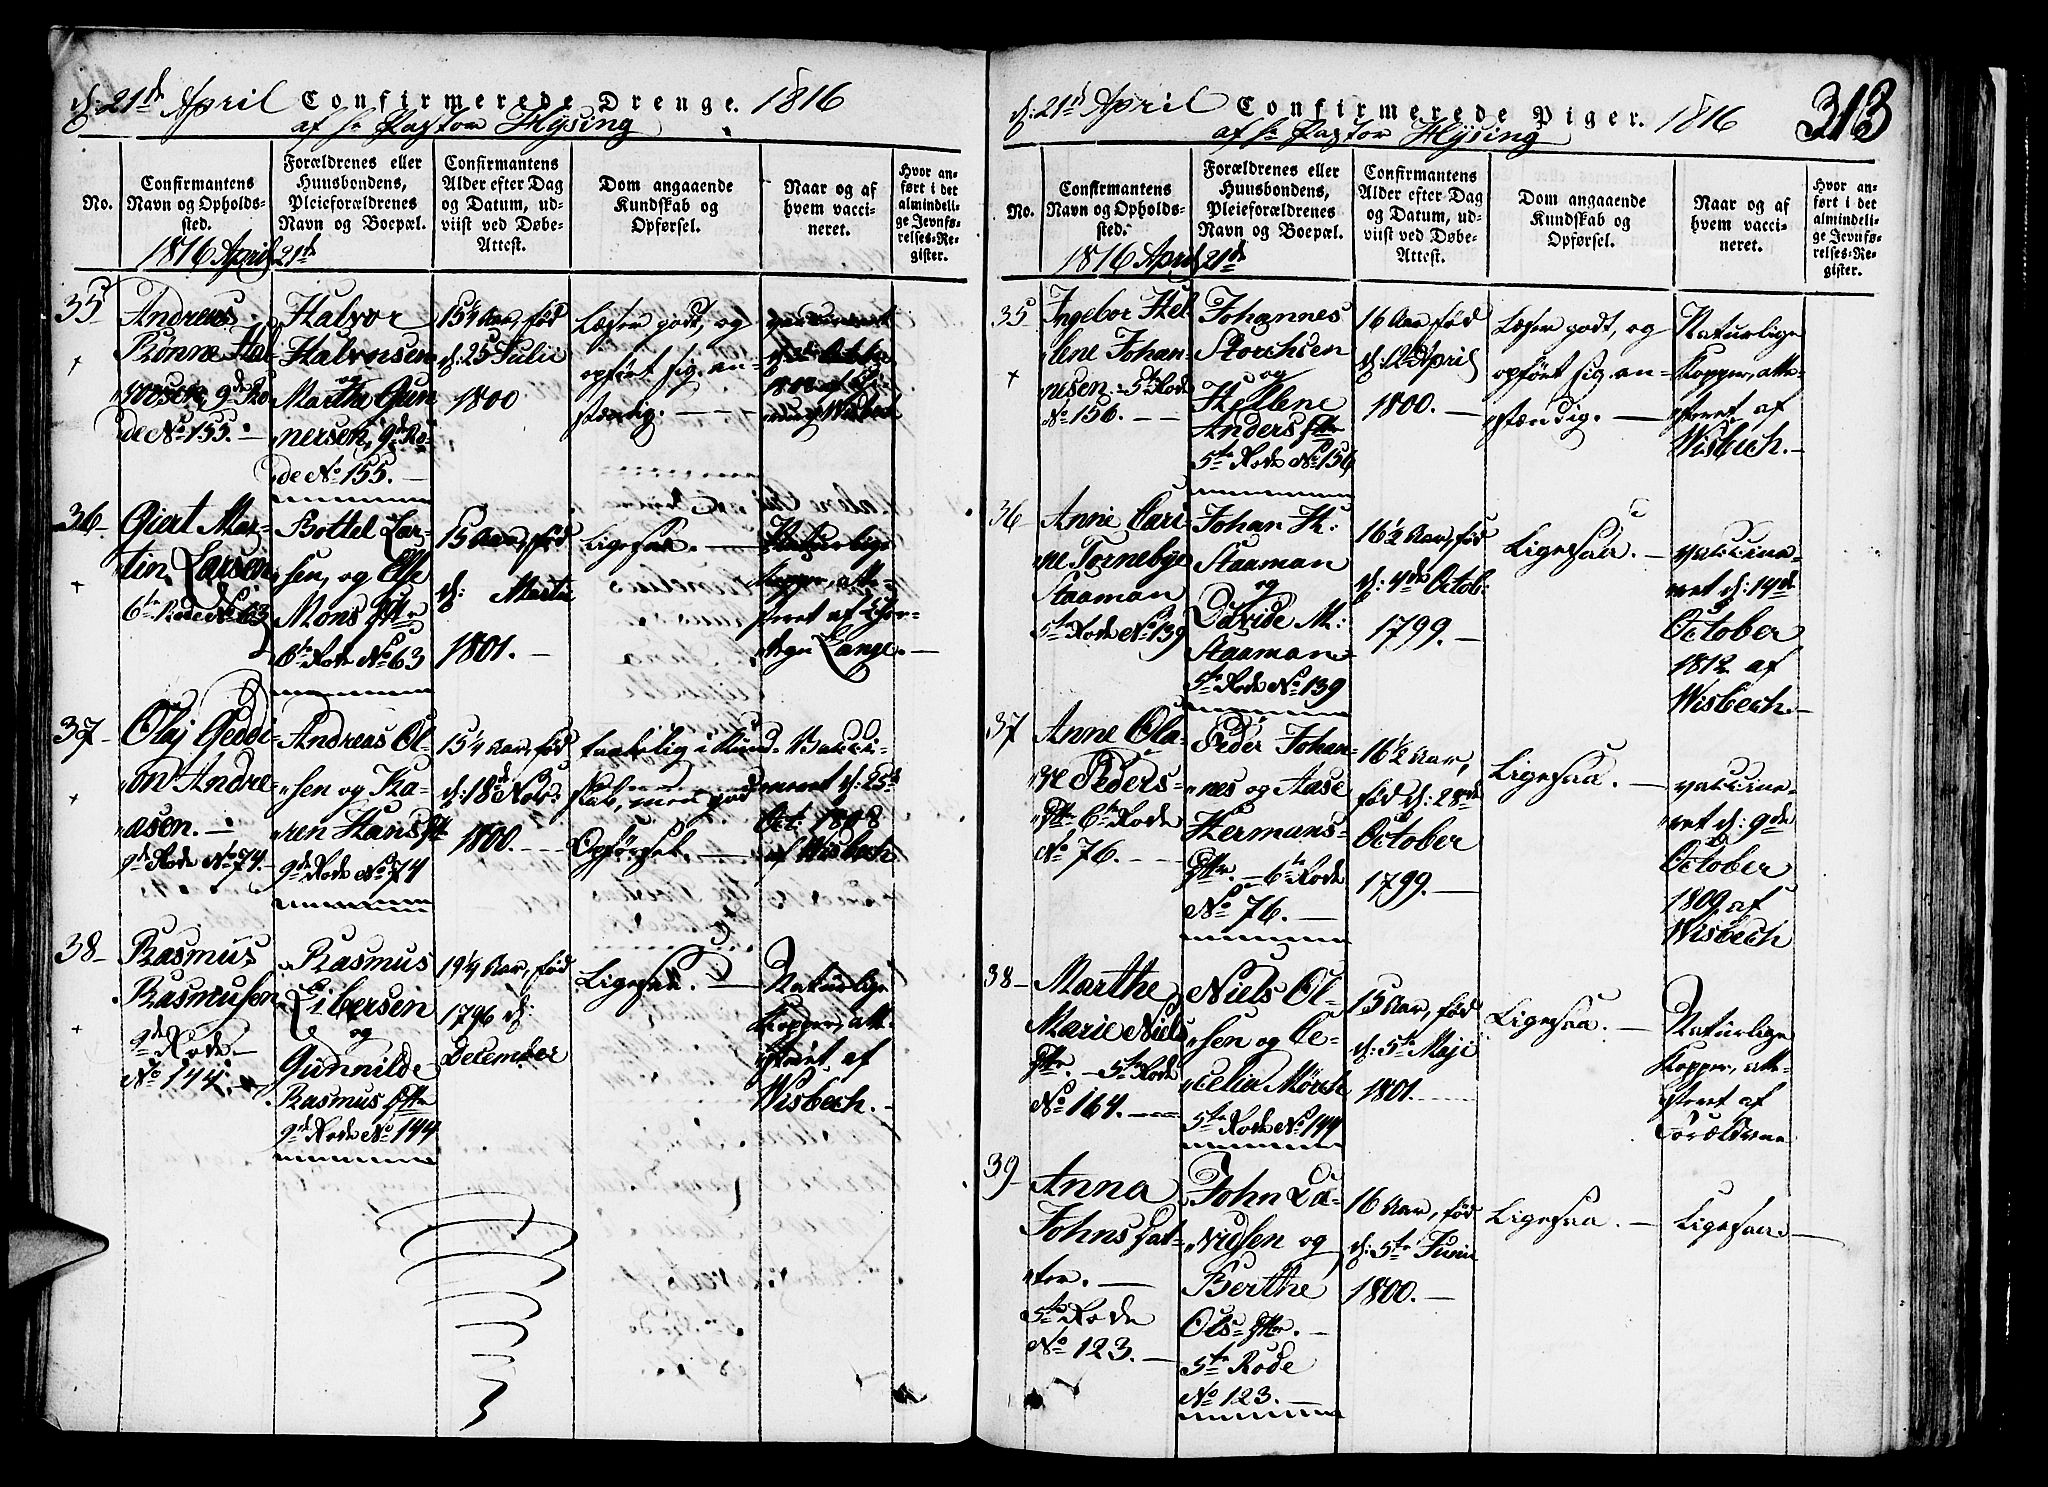 d: 21de April Confirmerede Drenge. 1816
af Hr Pastor Hysing
No.
Confirmantens
Navn og Opholds-
sted.
Forældrenes eller
Huusbondens,
Pleieforældrenes
Navn og Boepæl.
Confirmantens
Alder efter Dag
og Datum, ud-
viist ved Døbe-
Attest.
Dom angaaende
Kundskab og
Opførsel.
Naar og af
hvem vacci-
neret.
Hvor an-
ført i det
almindeli-
ge Jevnfø-
relses-Re-
gister.
1816 April 21de
35
Andreas
Rønne Hal-
vorsen, 9de Ro-
de No 155.
Halvor
Halvorsen
og
Martha Gun-
nersen, 9de Ro-
de No 155.
15¼ Aar, fød
d: 25 Julii
1800
Læser godt, og
opført sig an-
stændig.
36
Giert Mar-
tin Larsen
6te Rode No 63
Bottel Lar-
sen, og Else
Mons Dttr
6te Rode No 63
15 Aar, fød
d: Martii
1801.
Ligesaa.
Naturlige
Kopper, atte-
steret af
Lange.
37
Olaj Geddi-
on Andre-
asen.
9de Rode No 74.
Andreas Ol-
sen og Ka-
ren Hans Dttr
9de Rode No 74
15¼ Aar, fød
d: 18de Novr:
1800.
taalelig i Kund-
skab, men god
Opførsel.
Vacci-
neret d: 25de
Oct: 1808
af Wisbech
38
Rasmus
Rasmusen
9de Rode
No 144.
Rasmus
Eibersen
og
Gunnilde
Rasmus Dttr
9de Rode No 144
19¼ Aar, fød
1796 d:
December
Ligesaa.
Naturlige
Kopper, att-
steret af
Wisbech.
d: 21de April Confirmerede Piger. 1816
af Hr Pastor Hysing
313
No.
Confirmantens
Navn og Opholds-
sted.
Forældrenes eller
Huusbondens,
Pleieforældrenes
Navn og Boepæl.
Confirmantens
Alder efter Dag
og Datum, ud-
viist ved Døbe-
Attest.
Dom angaaende
Kundskab og
Opførsel.
Naar og af
hvem vacci-
neret.
Hvor an-
ført i det
almindeli-
ge Jevnfø-
relses-Re-
gister.
1816 April 21de
35
Ingebor Hel-
lene Johan-
nesen. 5te Rode
No 156.
Johannes
Storchsen
og
Hellene
Anders Dttr
5te Rode No 156
16 Aar, fød
d: 12 April
1800.
Læser godt, og
opført sig an-
stændig.
Naturlige
Kopper, atte-
steret af
Wisbech.
36
Anne Cari-
ne Tornebye
Staaman
5te Rode No 139
Johan H:
Staaman
og
Davide M:
Staaman
5te Rode No 139
16½ Aar, fød
d: 4de Octob:
1799.
Ligesaa.
vaccine-
ret d: 14de
October
1812 af
Wisbech.
37
Anne Ola-
ve Peders-
Dttr 6te Rode
No 76.
Peder Johan-
nes og Aase
Hermans-
Dttr. 6te Rode
No 76.
16½ Aar,
fød d: 28de
October
1799.
Ligesaa.
vaccine-
ret d: 9de
October
1809 af
Wisbech
38
Marthe
Marie Niels
Dttr. 5te Rode
No 164.
Niels Ol-
sen og Ce-
celia Mørch
5te Rode No 144
15 Aar, fød
d: 5te Maji
1801.
Ligesaa.
Naturlige
Kopper, atte-
steret af
Forældrene
39
Anna
Johns Dat-
ter.
5te Rode
No 123.
John Da-
vidsen og
Berthe
Ols Dttr.
5te Rode
No 123.
16 Aar, fød
d: 5te Junii
1800.
Ligesaa.
Ligesaa